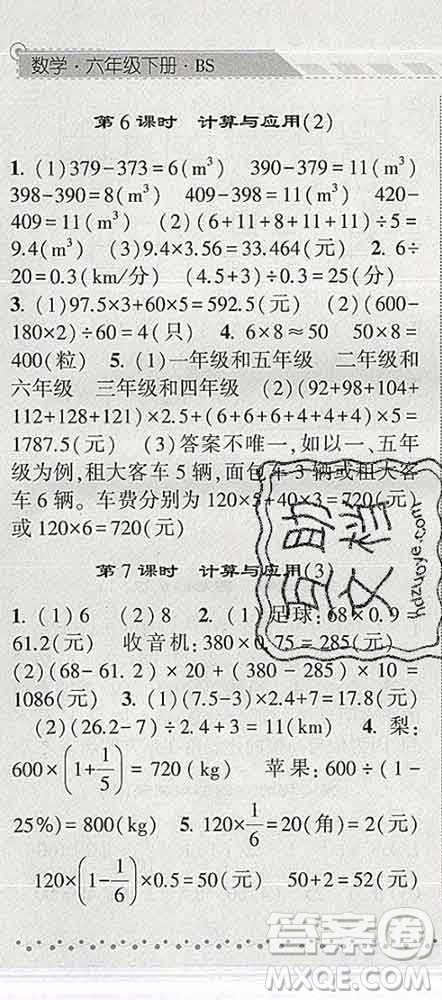 数学·六年级下册·BS
第6课时 计算与应用(2)
1. (1)379-373=6(m³) 390-379=11(m³)
398-390=8(m³) 409-398=11(m³) 420-
409=11(m³) (2)(6+11+8+11+11)÷5=
9.4(m³) (3)9.4×3.56=33.464(元) 2. 6÷
20=0.3(km/分) (4.5+3)÷0.3=25(分)
3. (1)97.5×3+60×5=592.5(元) (2)(600-
180×2)÷60=4(只) 4. 6×8≈50 50×8=
400(粒) 5. (1)一年级和五年级 二年级和
六年级 三年级和四年级 (2)(92+98+104+
112+128+121)×2.5+(6+6+6+4+4+4)×5=
1787.5(元) (3)答案不唯一,如以一、五年
级为例,租大客车5辆,面包车3辆或租大客
车6辆。车费分别为120×5+40×3=720(元)
或120×6=720(元)
第7课时 计算与应用(3)
1. (1)6 (2)8 2. (1)足球:68×0.9=
61.2(元) 收音机:380×0.75=285(元)
(2)(68-61.2)×20+(380-285)×10=
1086(元) 3. (1)(7.5-3)×2.4+7=17.8(元)
(2)(26.2-7)÷2.4+3=11(km) 4. 梨:
600×(1+1/5)=720(kg) 苹果:600÷(1-
25%)=800(kg) 5. 120×1/6=20(角)=2(元)
120×(1-1/6)×0.5=50(元) 50+2=52(元)
助档
互文
hdzuoye.com
答案圈
MXQE.COM